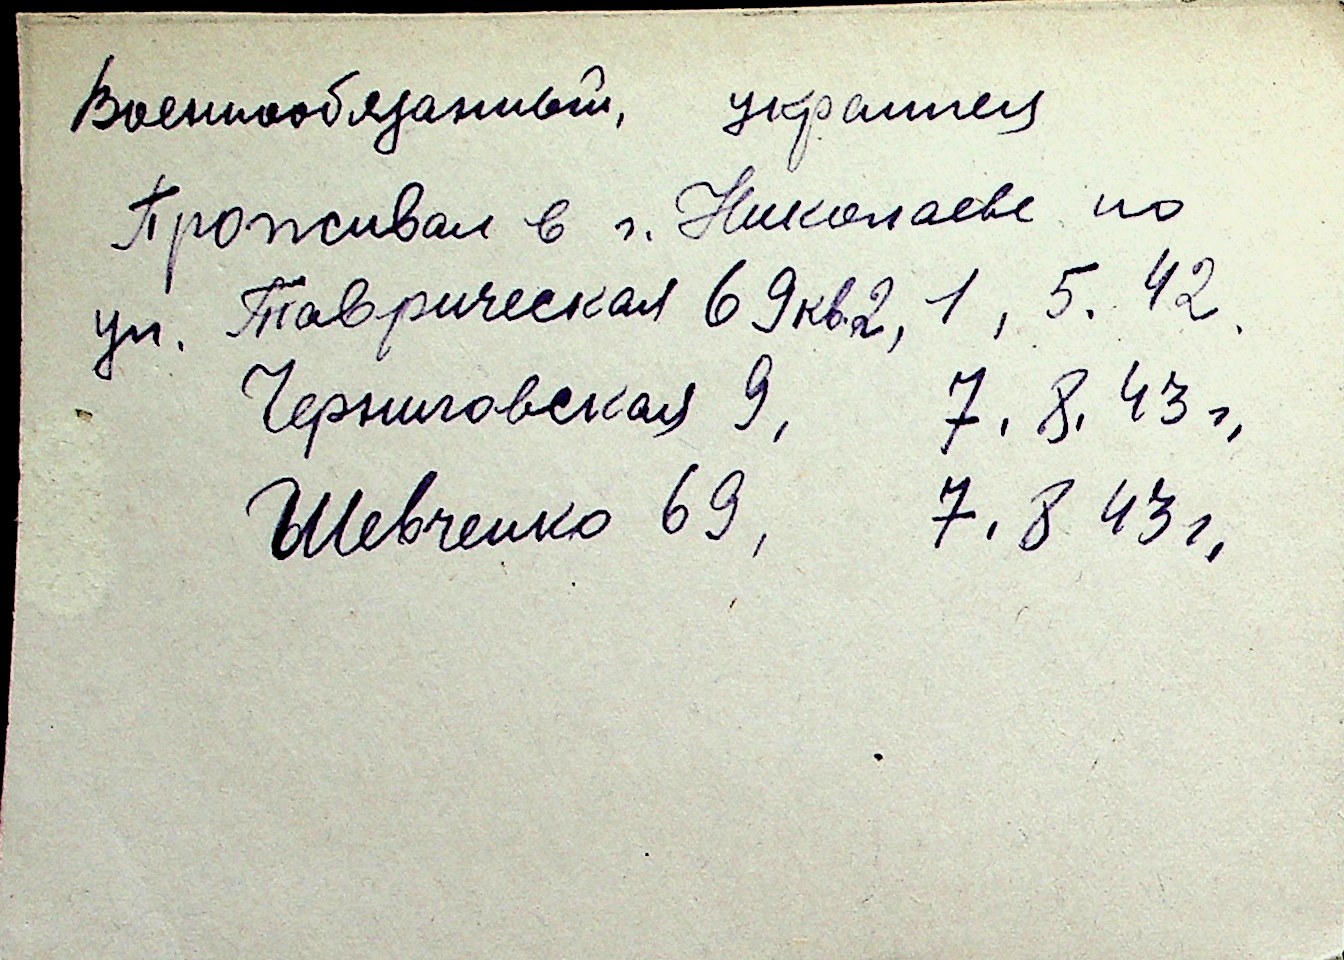 Военнообязанный, украинец
Проживал в г. Николаеве по
ул. Таврическая 69 кв.2, 1, 5. 42.
Черниговская 9, 7. 8. 43 г,
Шевченко 69, 7. 8 43 г,